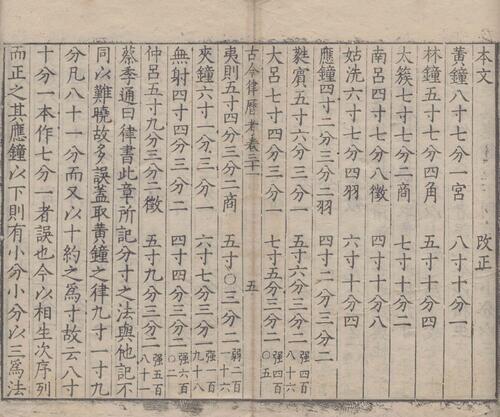 本文 改正
黃鐘八寸七分一宮 八寸十分一
林鐘五寸七分四角 五寸十分四
太簇七寸七分二商 七寸十分二
南呂四寸七分八徵 四寸十分八
姑洗六寸七分四羽 六寸十分四
應鐘四寸二分三分二羽 四寸二分三分二
蕤賓五寸六分三分一 五寸六分三分二強四百八十六
大呂七寸四分三分一 七寸五分三分二強四百〇五
古今律曆考卷三十一 五
夷則五寸四分三分二商 五寸〇三分二弱二百一十六
夾鐘六寸一分三分一 六寸七分三分一強一百九十八
無射四寸四分三分二 四寸四分三分二強六百〇二
仲呂五寸九分三分二徵 五寸九分三分二強五百八十一
蔡季通曰律書此章所記分寸之法與他記不
同以難曉故多誤蓋取黃鐘之律九寸一寸九
分凡八十一分而又以十約之爲寸故云八寸
十分一本作七分一者誤也今以相生次序列
而正之其應鐘以下則有小分小分以三爲法